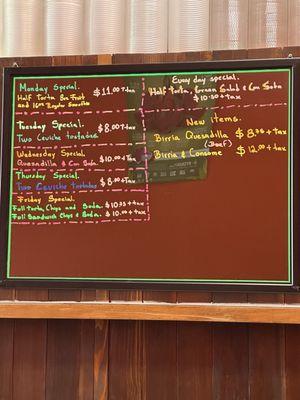 Monday Special.
$11.00 + tax
Half Torta Bro Fruit
and 16oz Regular Smoothie
Tuesday Special.
$8.00 + tax
Two Ceviche tostadas
Wednesday Special.
Quesadilla & Can Soda.
$10.00 + tax
Thursday Special.
Two Ceviche Tostadas
$8.00 + tax
Friday Special.
Full Torta, Chops and Soda. $10.95 + tax
Full Sandwich Chops & Soda. $10.00 + tax
Every day special.
Half Torta, Green Salad & Can Soda
$10.50 + tax
New items.
Birria Quesadilla $8.95 + tax
(Beef)
Birria & Consome $12.00 + tax